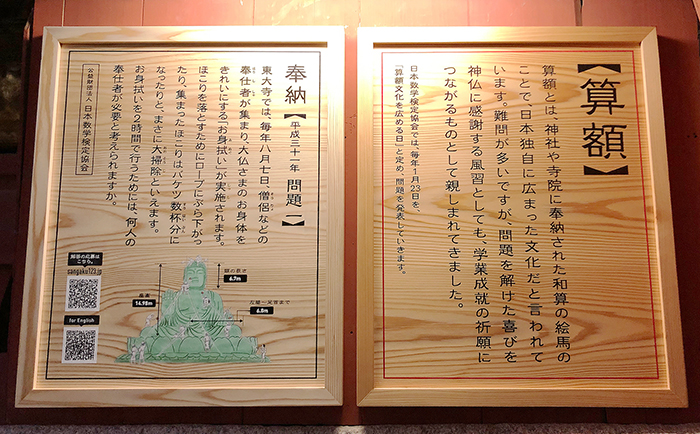 【算額】
算額とは、神社や寺院に奉納された和算の絵馬の
ことで、日本独自に広まった文化だと言われて
います。難問が多いですが、問題を解けた喜びを
神仏に感謝する風習としても、学業成就の祈願に
つながるものとして親しまれてきました。
日本数学検定協会では、毎年1月23日を、
「算額文化を広める日」と定め、問題を発表していきます。
奉納【平成三十一年 問題一】
東大寺では、毎年八月七日、僧侶などの
奉仕者が集まり、大仏さまのお身体を
きれいにする「お身拭い」が実施されます。
ほこりを落とすためにロープにぶら下がっ
たり、集まったほこりはバケツ数杯分に
なったりと、まさに大掃除といえます。
お身拭いを2時間で行うためには、何人の
奉仕者が必要と考えられますか。
公益財団法人 日本数学検定協会
解答の応募は
こちら。
sangaku123.jp
for English
6.7m
高さ
14.98m
6.8m